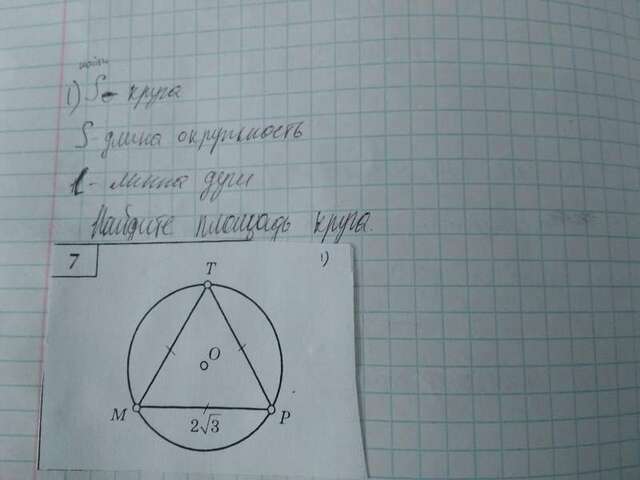 найти
1) S - круга
S - длина окружность
l - длина дуги
Найдите площадь круга.
7
1)
T
O
M
P
2√3